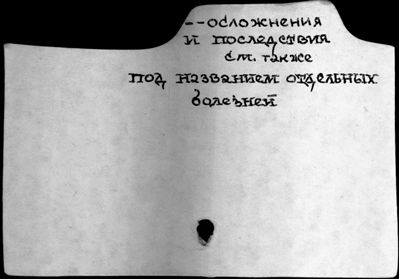 --осложнения
и последствия
см. также
под названием отдельных
болезней